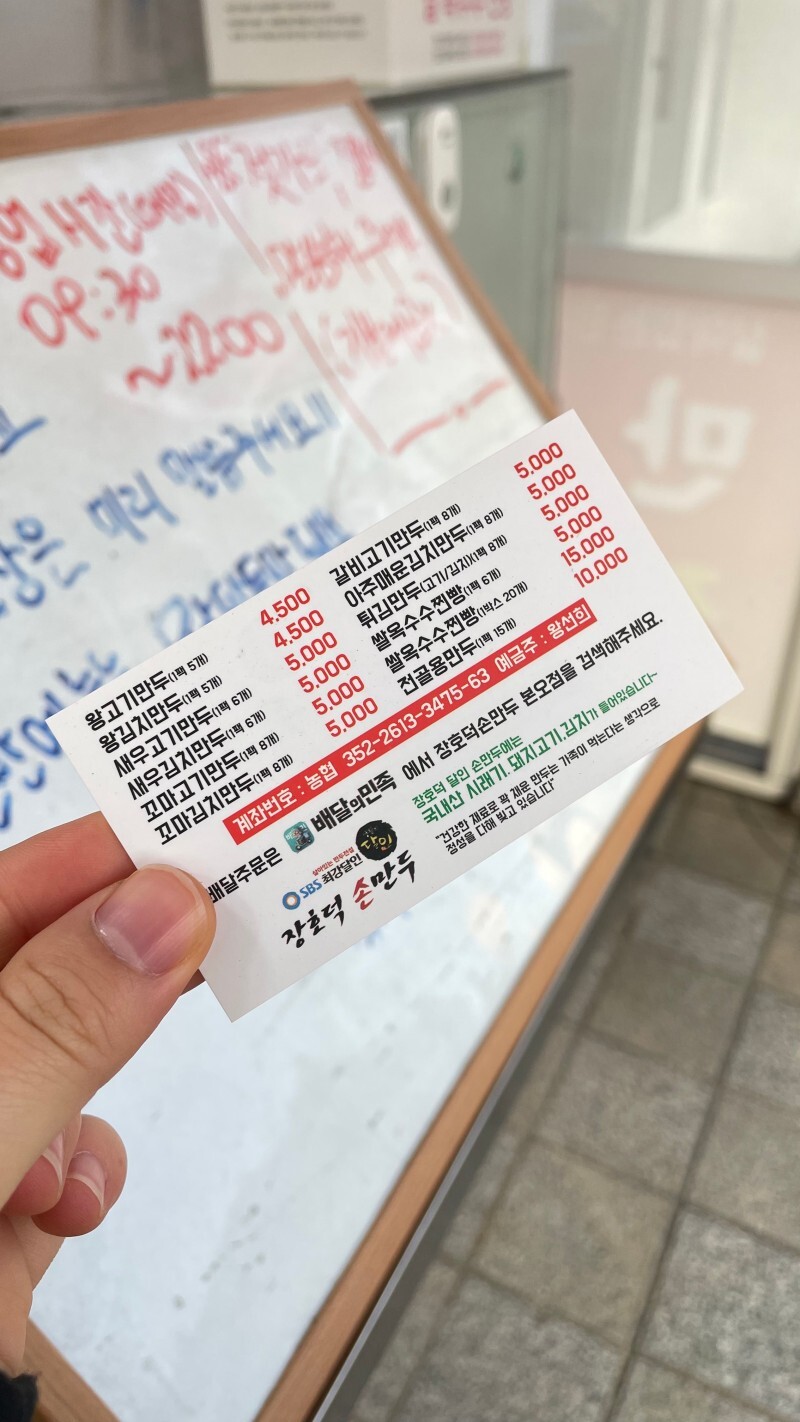 영업시간(매일)
09:30
~22:00
미리 말씀주세요!!
왕고기만두(1팩 5개) 4,500
왕김치만두(1팩 5개) 4,500
새우고기만두(1팩 6개) 5,000
새우김치만두(1팩 6개) 5,000
꼬마고기만두(1팩 8개) 5,000
꼬마김치만두(1팩 8개) 5,000
갈비고기만두(1팩 8개) 5,000
아주매운김치만두(1팩 8개) 5,000
튀김만두(고기/김치)(1팩 8개) 5,000
쌀옥수수찐빵(1팩 6개) 5,000
쌀옥수수찐빵(1박스 20개) 15,000
전골용만두(1팩 15개) 10,000
계좌번호 : 농협 352-2613-3475-63 예금주 : 왕선희
배달주문은 배달의민족 에서 장호덕손만두 본오점을 검색해주세요.
살아있는 만두전설
SBS 최강달인 달인
장호덕 손만두
장호덕 달인 손만두에는
국내산 시래기, 돼지고기,김치가 들어있습니다~
"건강한 재료로 꽉 채운 만두는 가족이 먹는다는 생각으로
정성을 다해 빚고 있습니다"